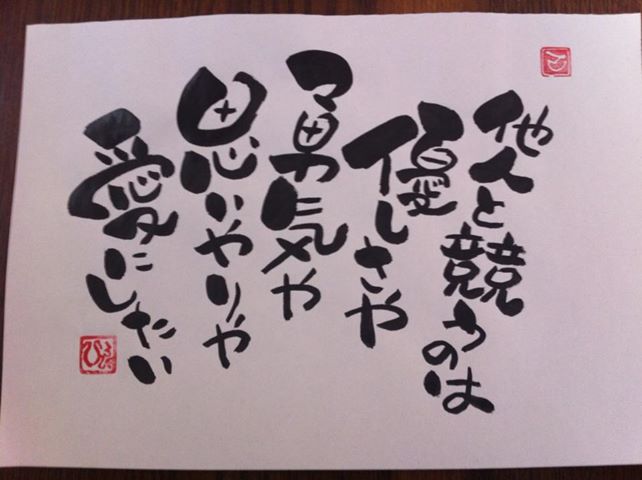 他人と競うのは
優しさや
勇気や
思いやりや
愛にしたい